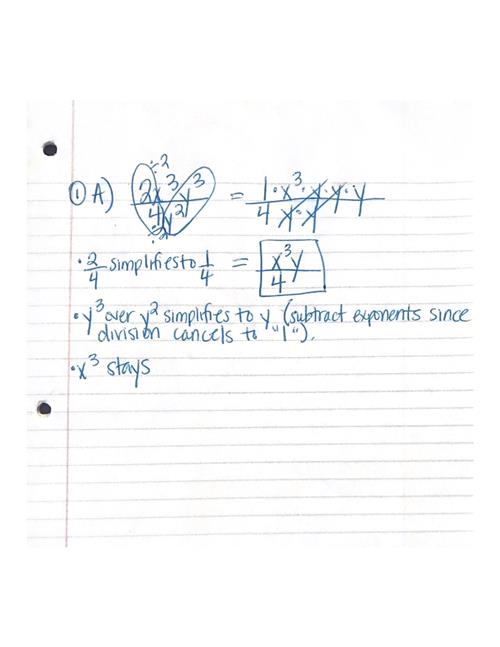 ÷2
① A) 2x³y³ / 4y² = 1·x³·y·y·y / 4 y·y
÷2
·2/4 simplifies to 1/4 = x³y / 4
·y³ over y² simplifies to y (subtract exponents since
division cancels to "1").
·x³ stays